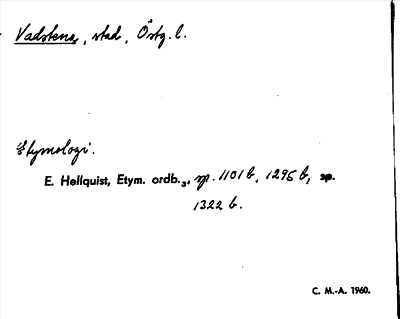 Vadstena, stad, Östg. l.
Etymologi.
E. Hellquist, Etym. ordb.₃, sp. 1101 b, 1295 b, sp.
1322 b.
C. M.-A. 1960.